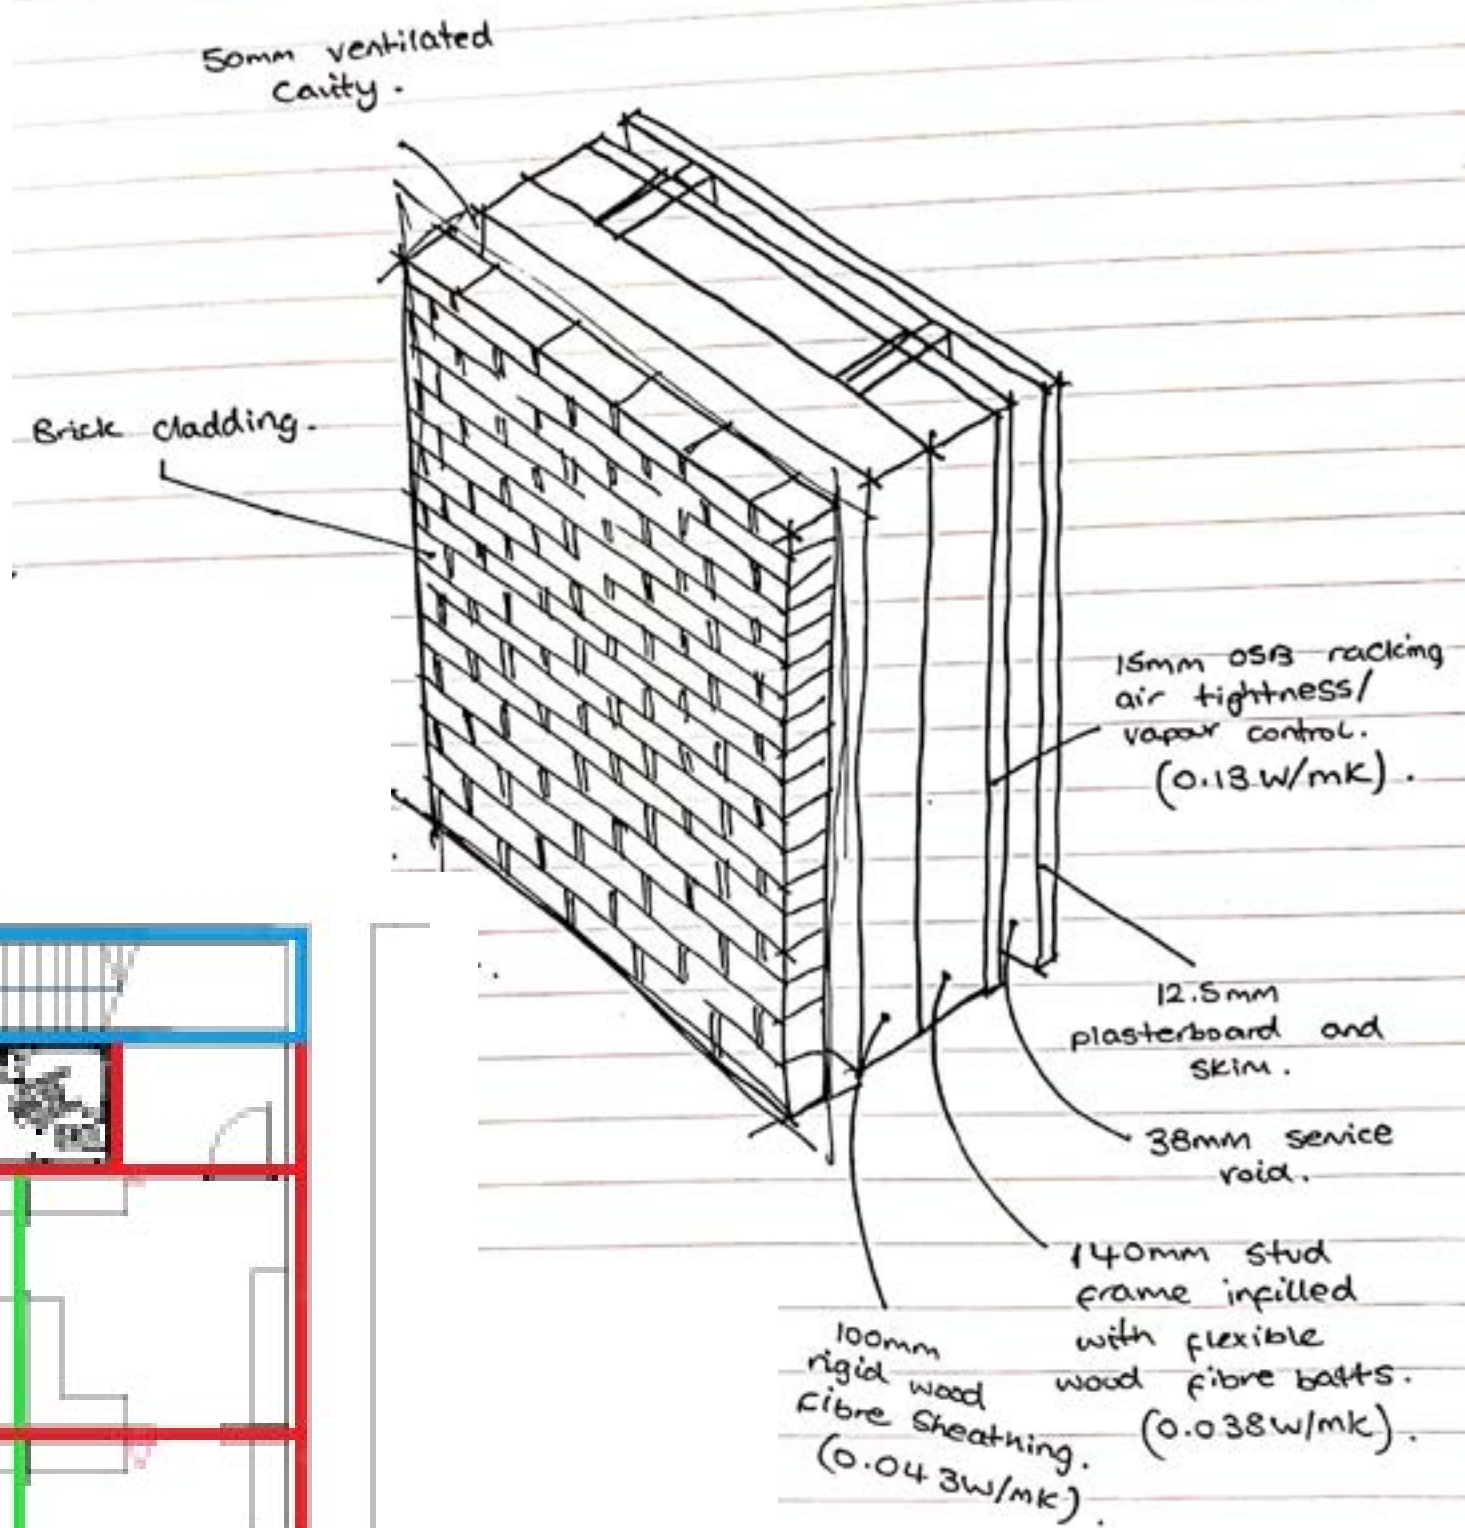 50mm ventilated
cavity.
Brick cladding.
15mm OSB racking
air tightness/
vapour control.
(0.13 W/mK).
12.5mm
plasterboard and
skim.
38mm service
void.
140mm stud
frame infilled
with flexible
wood fibre batts.
(0.038W/mK).
100mm
rigid wood
fibre sheathing.
(0.043W/mK).